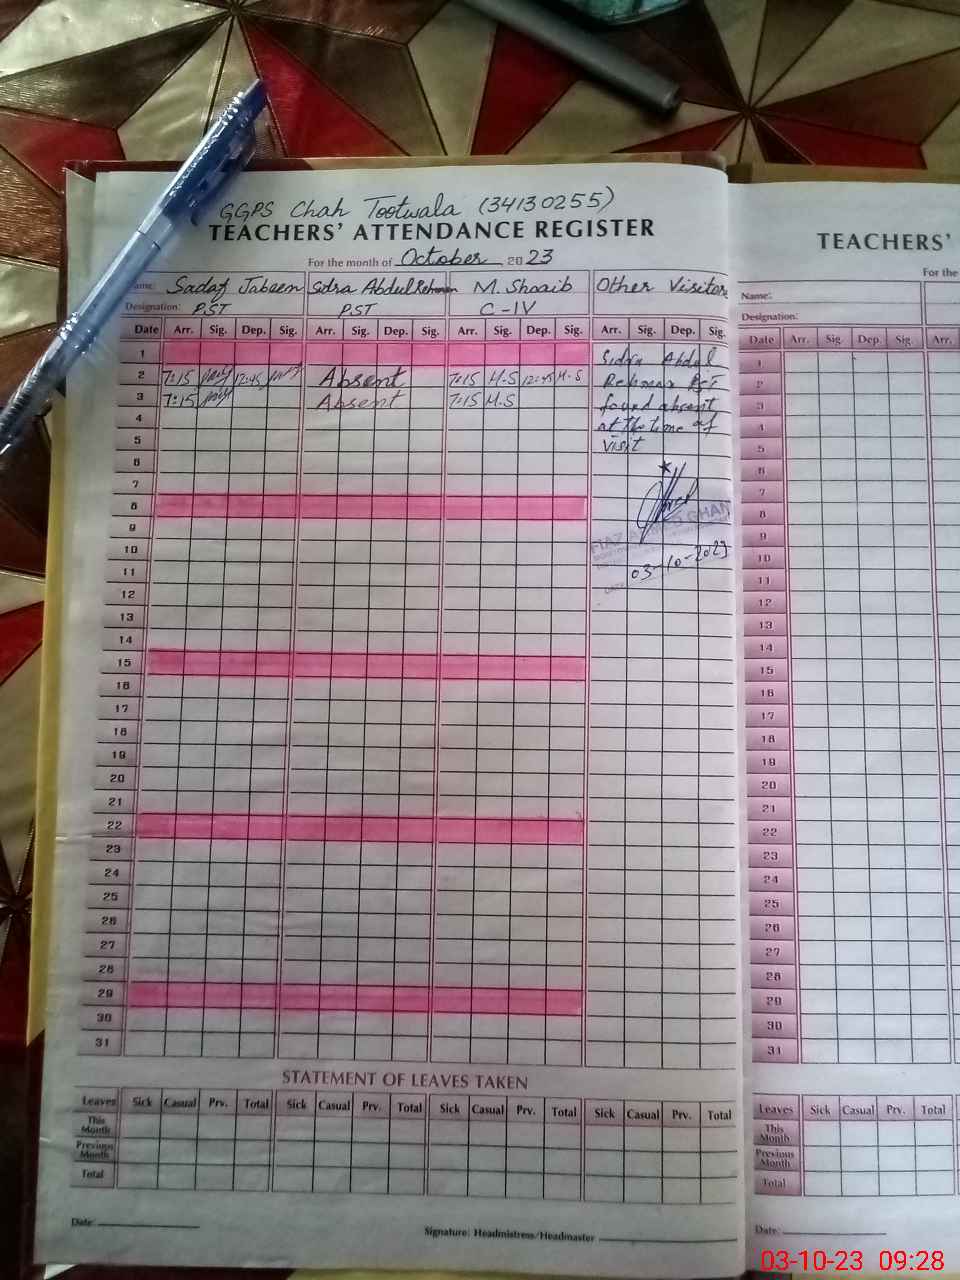 GGPS Chah Tootwala (34130255)
TEACHERS' ATTENDANCE REGISTER
For the month of October 2023
Name: Sadaf Jabeen Sidra Abdul Rehman M. Shoaib Other Visitors
Designation: PST PST C-IV
Date Arr. Sig. Dep. Sig. Arr. Sig. Dep. Sig. Arr. Sig. Dep. Sig. Arr. Sig. Dep. Sig.
1 Sidra Abdul
2 7:15 12:45 Absent 7:15 M-S 12:45 M-S Rehman PST
3 7:15 Absent 7:15 M-S found absent
4 at the time of
5 visit
6
7
8
9
10
11 03-10-2023
12
13
14
15
16
17
18
19
20
21
22
23
24
25
26
27
28
29
30
31
STATEMENT OF LEAVES TAKEN
Leaves Sick Casual Prv. Total Sick Casual Prv. Total Sick Casual Prv. Total Sick Casual Prv. Total
This Month
Previous Month
Total
Date:
Signature: Headmistress/Headmaster
TEACHERS'
For the
Name:
Designation:
Date Arr. Sig. Dep. Sig. Arr.
1
2
3
4
5
6
7
8
9
10
11
12
13
14
15
16
17
18
19
20
21
22
23
24
25
26
27
28
29
30
31
Leaves Sick Casual Prv. Total
This Month
Previous Month
Total
Date:
03-10-23 09:28